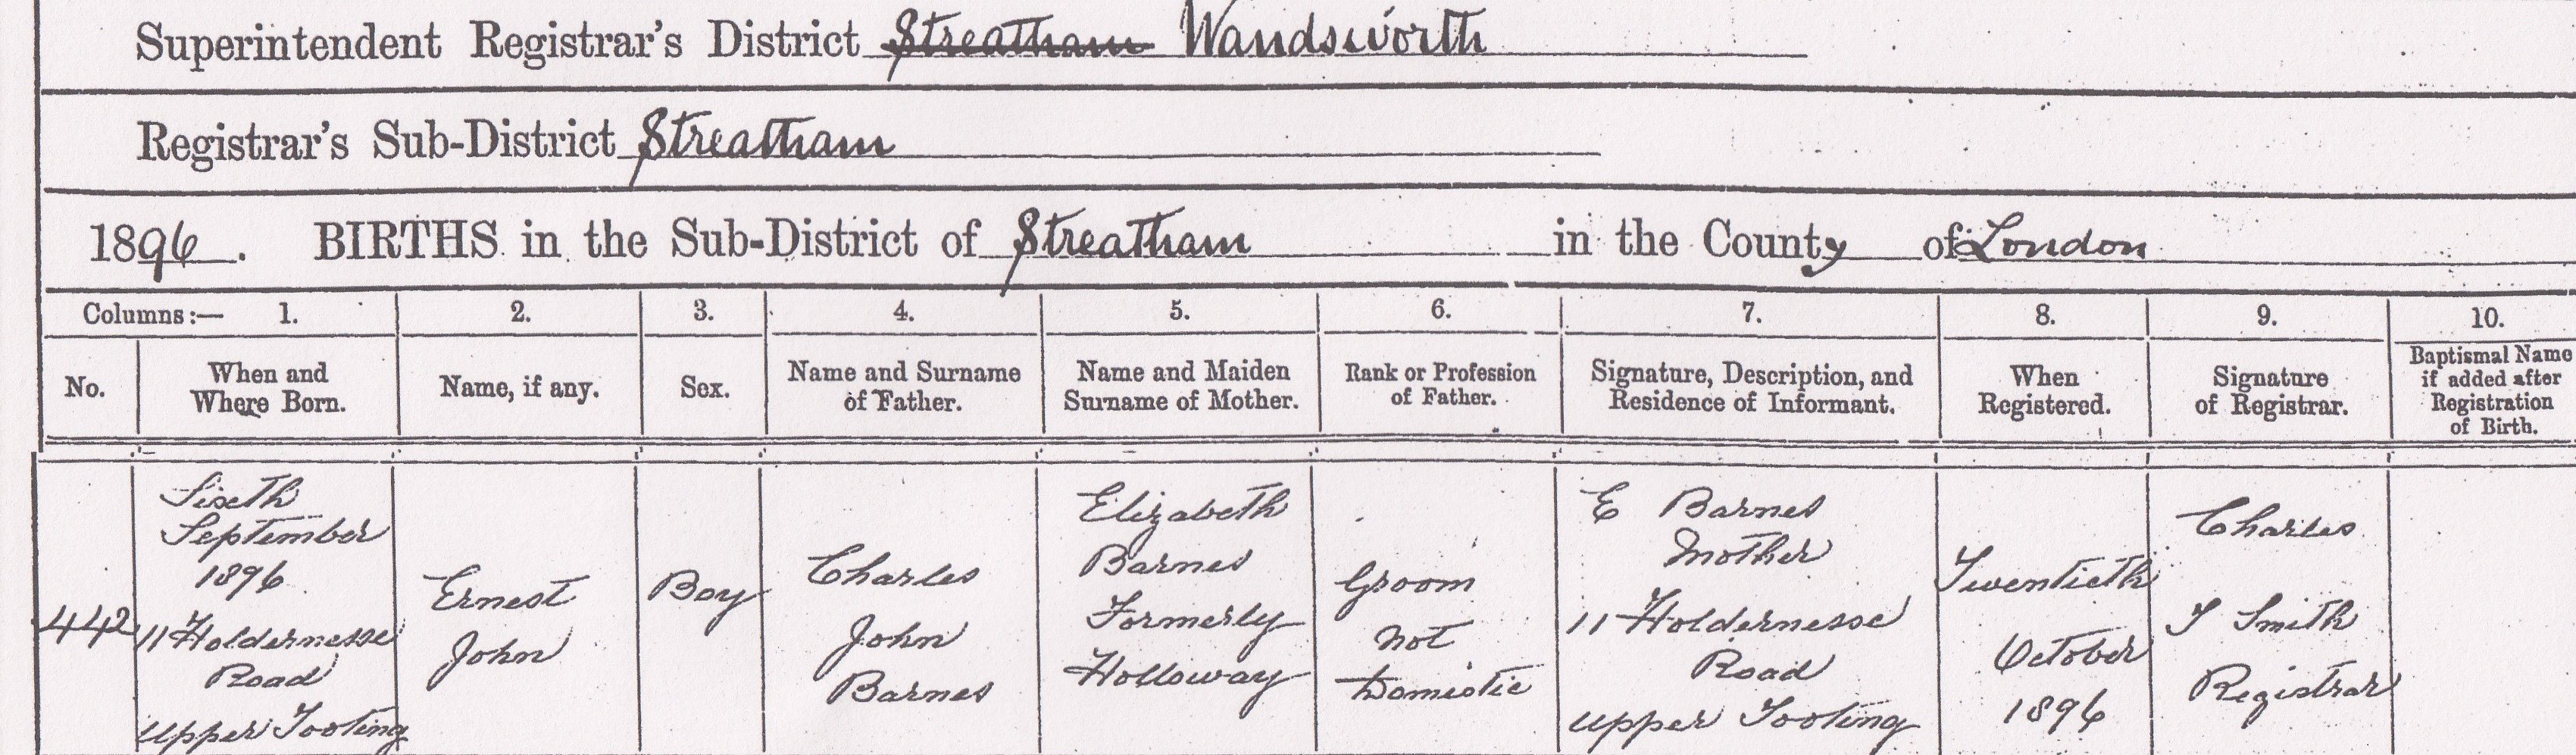 Superintendent Registrar's District Streatham Wandsworth
Registrar's Sub-District Streatham
1896. BIRTHS in the Sub-District of Streatham in the County of London
Columns:— 1. 2. 3. 4. 5. 6. 7. 8. 9. 10.
No.
When and
Where Born.
Name, if any.
Sex.
Name and Surname
of Father.
Name and Maiden
Surname of Mother.
Rank or Profession
of Father.
Signature, Description, and
Residence of Informant.
When
Registered.
Signature
of Registrar.
Baptismal Name
if added after
Registration
of Birth.
442
Sixth
September
1896
11 Holdernesse
Road
Upper Tooting
Ernest
John
Boy
Charles
John
Barnes
Elizabeth
Barnes
Formerly
Holloway
Groom
not
Domestic
E Barnes
Mother
11 Holdernesse
Road
Upper Tooting
Twentieth
October
1896
Charles
T Smith
Registrar